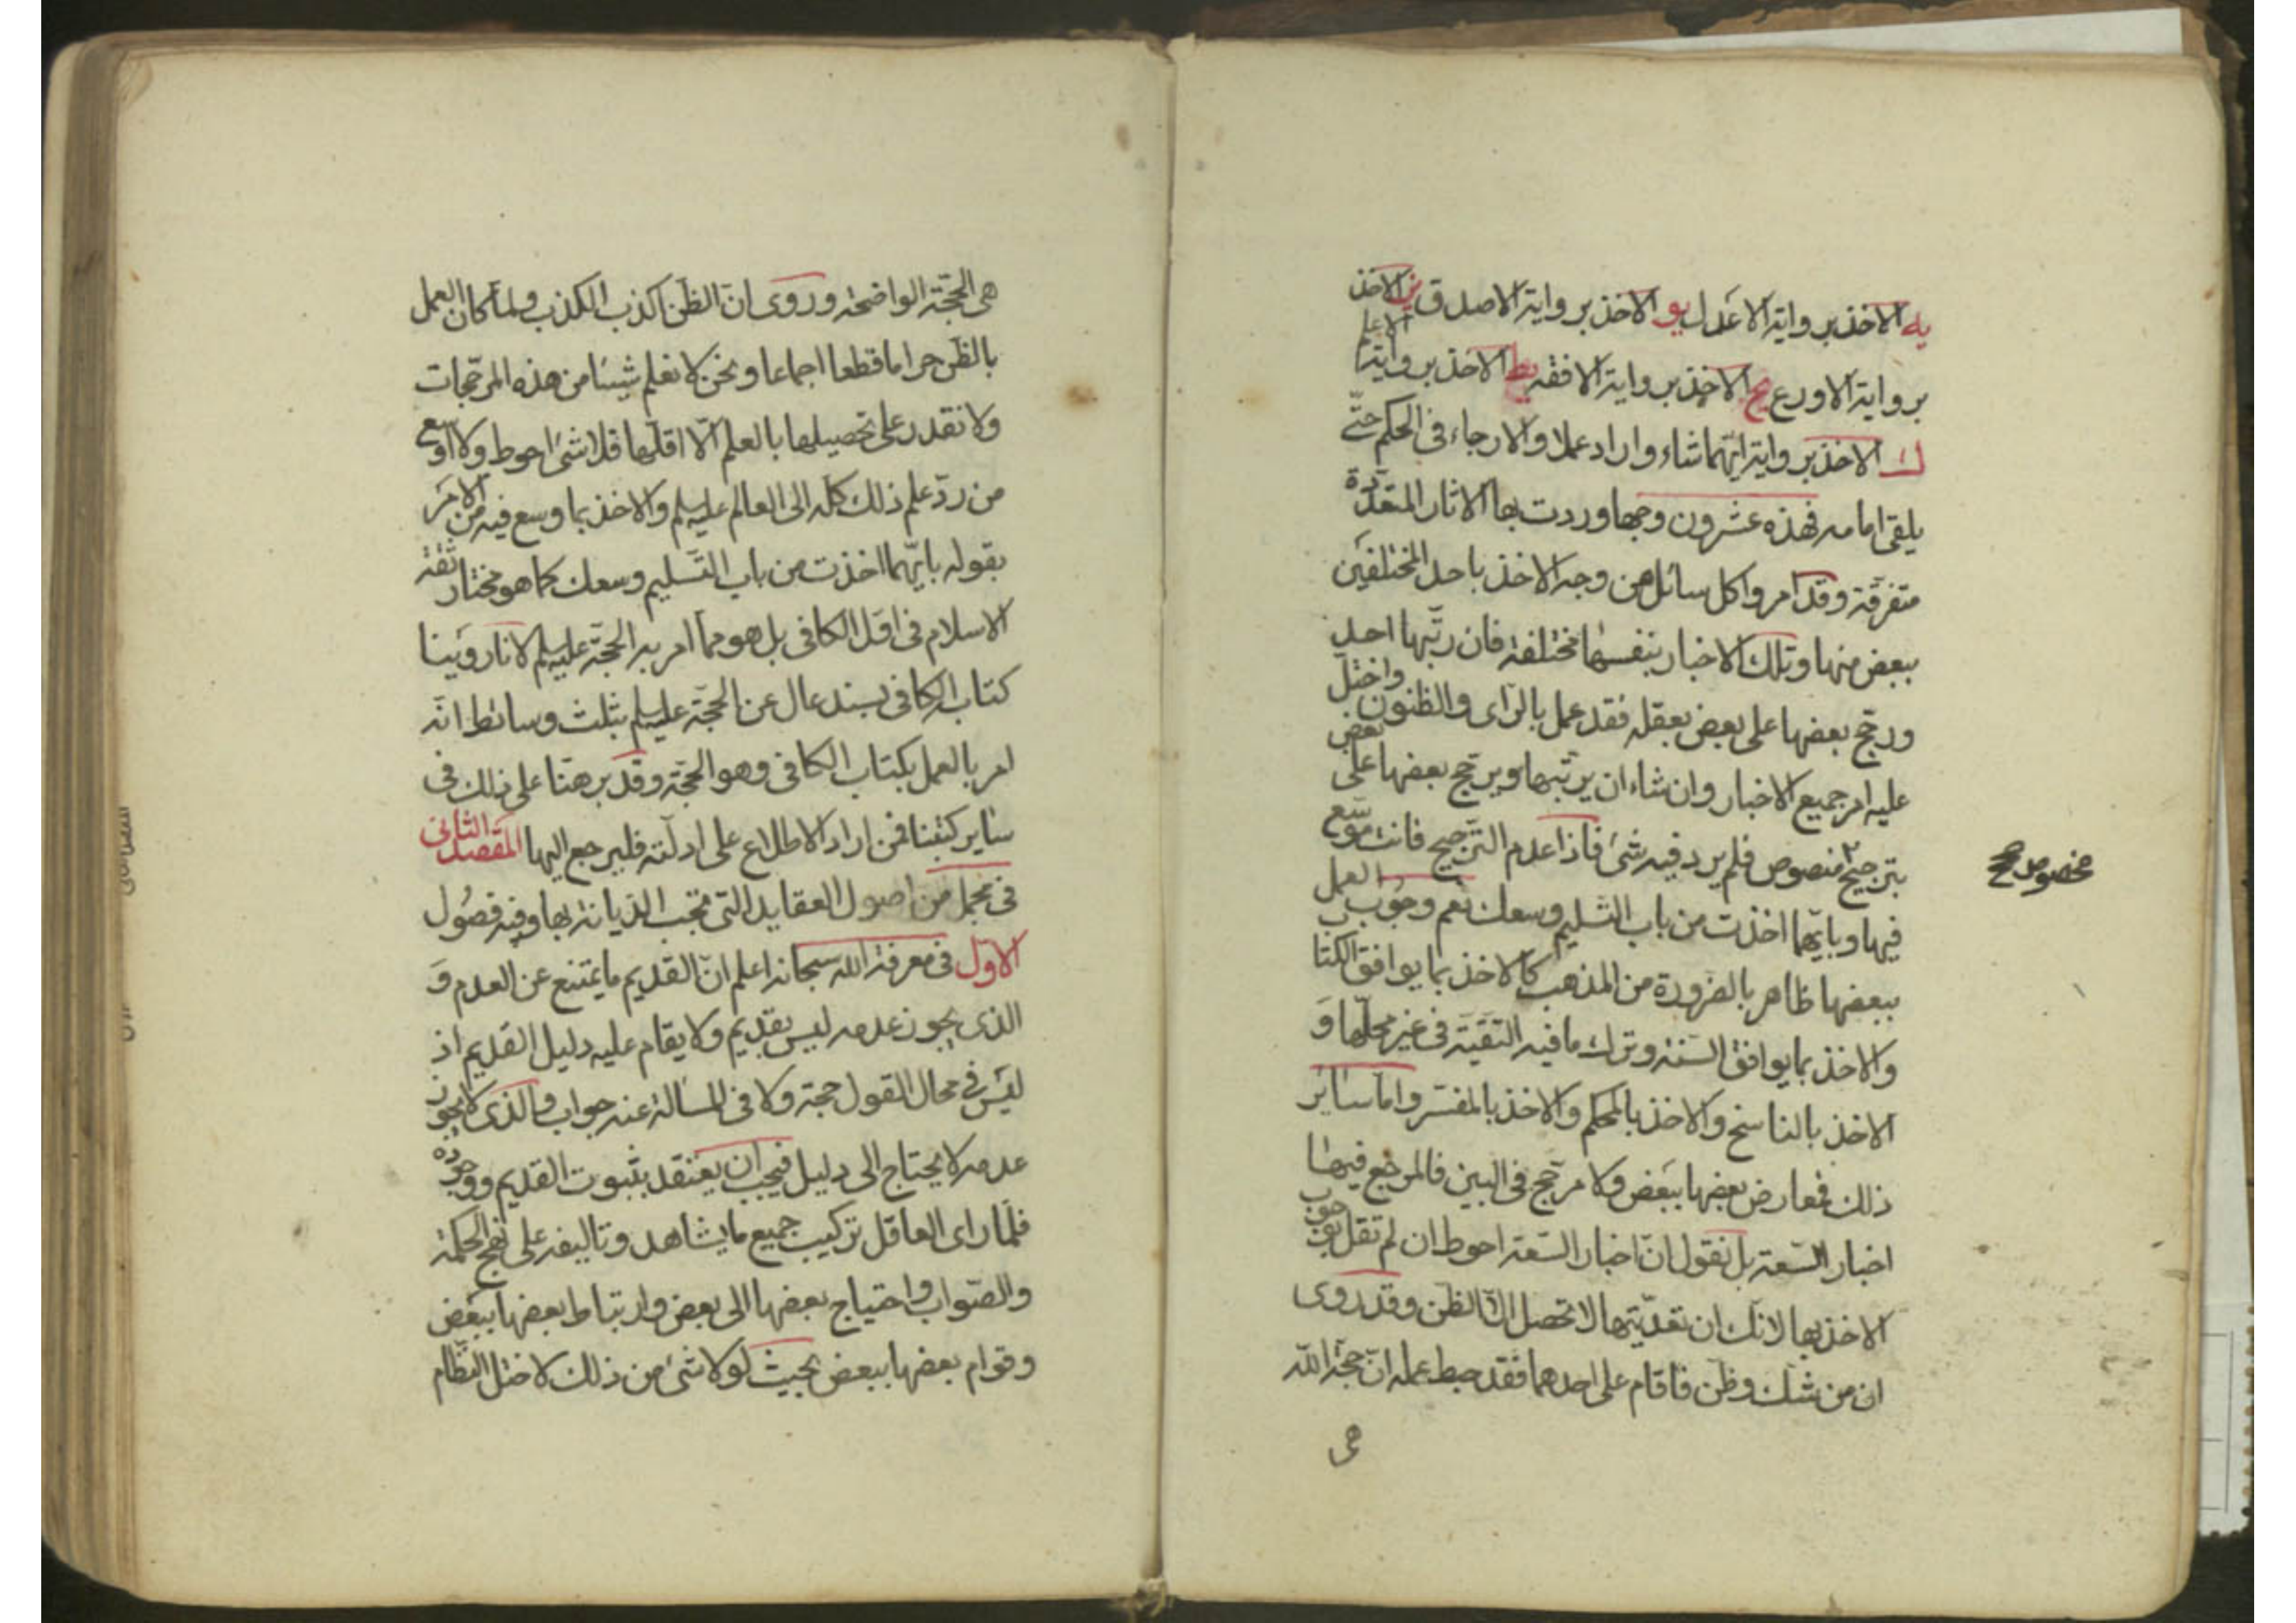 يه الاخذ برواية الاعدل يو الاخذ برواية الاصدق يز الاخذ
برواية الاورع يح الاخذ برواية الافقه يط الاخذ برواية الاعلم
ك الاخذ برواية ايهما شاء واراد عملا والارجاء فى الحكم حتى
يلقى امامه فهذه عشرون وجها وردت بها الاثار المتعددة
متفرقة وقد امروا كل سائل من وجه الاخذ باحد المختلفين
ببعض منها وتلك الاخبار بنفسها مختلفة فان رتبها احد
ورجح بعضها على بعض بعقله فقد عمل بالراى والظنون واختل
عليه امر جميع الاخبار وان شاء ان يرتبها ويرجح بعضها على بعض
بترجيح منصوص فلم يرد فيه شئ فاذا عدم الترجيح فانت موسع
مخصوص صح
فيها وبايهما اخذت من باب التسليم وسعك نعم وجوب العمل
ببعضها ظاهر بالضرورة من المذهب كالاخذ بما يوافق الكتاب
والاخذ بما يوافق السنة وترك ما فيه التقية فى غير محلها و
الاخذ بالناسخ والاخذ بالمحكم والاخذ بالمفسر واما ساير
ذلك فمعارض بعضها ببعض ولا مرجح فى البين فالمرجع فيها
اخبار السعة بل نقول ان اخبار السعة احوط ان لم نقل بوجوب
الاخذ بها لانك ان تعديتها لا تحصل الا الظن وقد روى
ان من شك وظن فاقام على احدهما فقد حبط عمله ان حجة الله
هى
هى الحجة الواضحة وروى ان الظن اكذب الكذب ولما كان العمل
بالظن حراما قطعا اجماعا ونحن لا نعلم شيئا من هذه المرجحات
ولا نقدر على تحصيلها بالعلم الا اقلها فلا شئ احوط ولا اوسع
من رد علم ذلك كله الى العالم عليه السلم والاخذ بما وسع فيه من الامر
بقوله بايهما اخذت من باب التسليم وسعك كما هو مختار ثقة
الاسلام فى اول الكافى بل هو مما امر به الحجة عليه السلم لانا روينا
كتاب الكافى بسند عال عن الحجة عليه السلم بثلث وسائط انه
امر بالعمل بكتاب الكافى وهو الحجة وقد برهنا على ذلك فى
ساير كتبنا فمن اراد الاطلاع على ادلته فليرجع اليها المقصد الثانى
فى مجمل من اصول العقايد التى تجب الديانة بها وفيه فصول
الاول فى معرفة الله سبحانه اعلم ان القديم ما يمتنع عن العدم و
الذى يجوز عدمه ليس بقديم ولا يقام عليه دليل القديم اذ
ليس فى محال القول حجة ولا فى المسالة عنه جواب والذى لا يجوز
عدمه لا يحتاج الى دليل فيجب ان يعتقد بثبوت القديم ووجوده
فلما راى العاقل تركيب جميع ما يشاهد وتاليفه على نهج الحكمة
والصواب واحتياج بعضها الى بعض وارتباط بعضها ببعض
وقوام بعضها ببعض بحيث لولا شئ من ذلك لاختل النظام